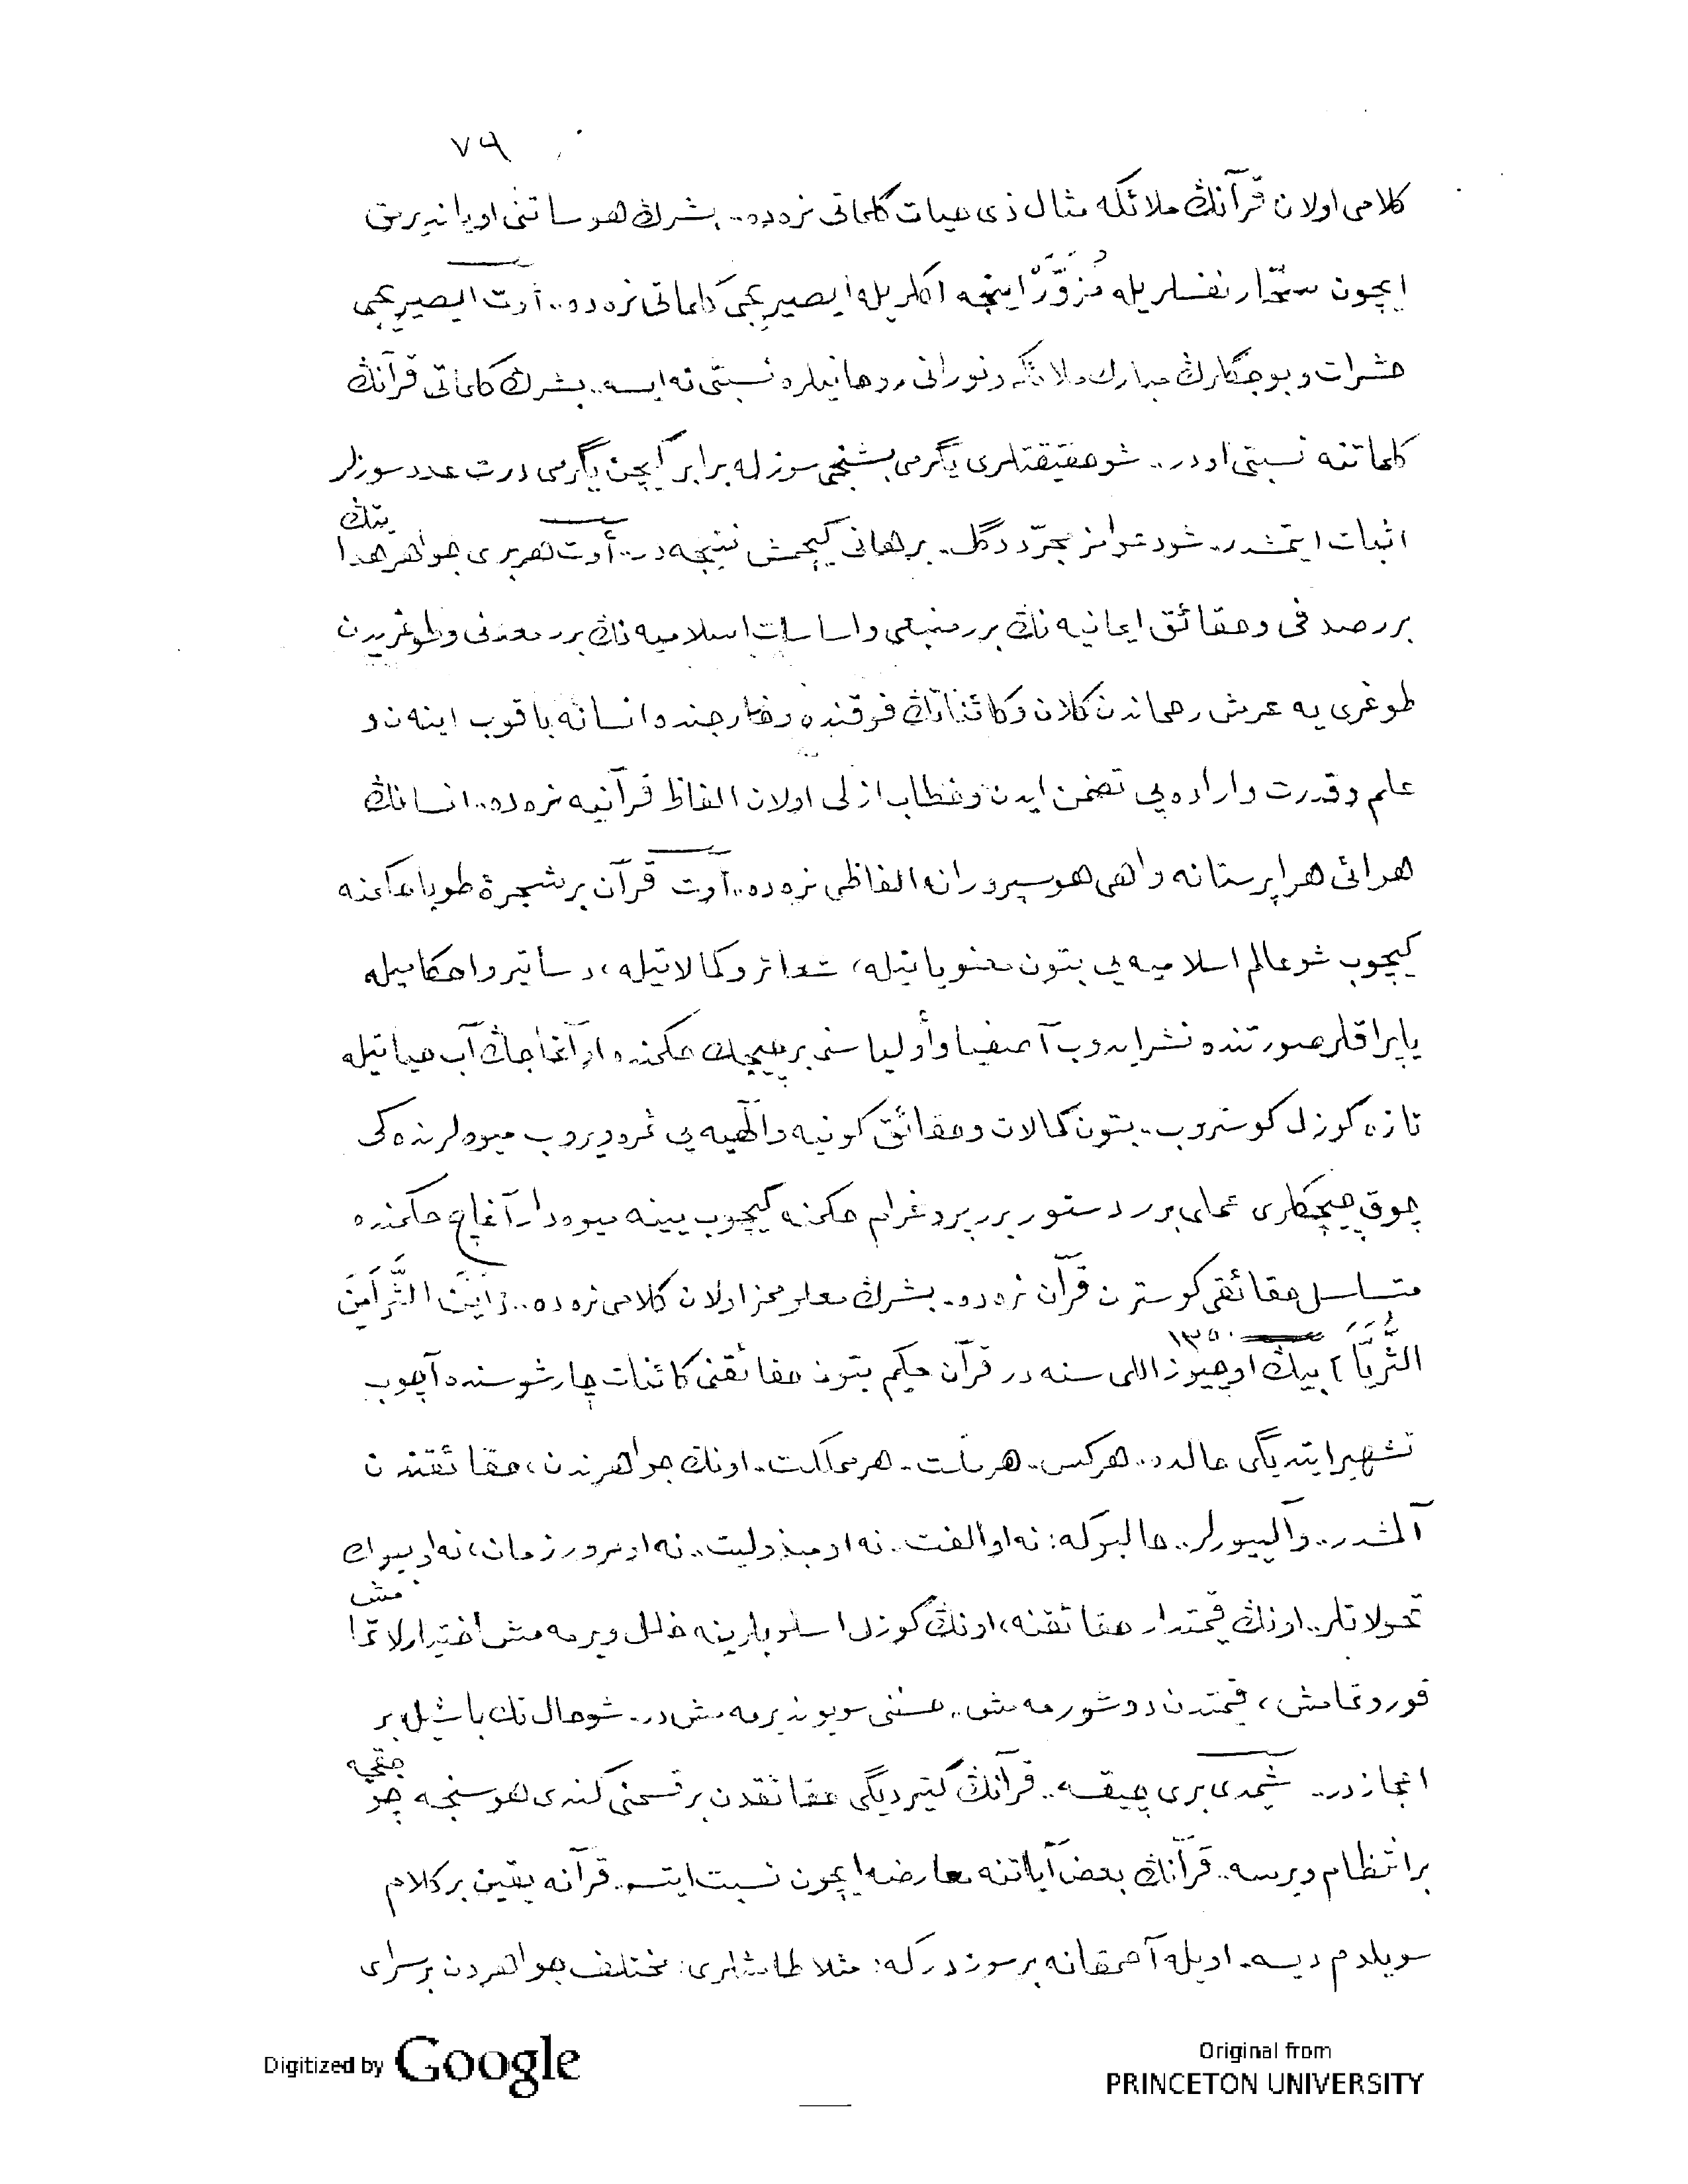 ٧٩
كلامی اولان قرآنڭ ملائكه مثال ذی حیات كلماتی نره‌ده.. بشرڭ هوساتنی اویاندیرمق
ایچون سحّار نفسلریله مُزَوَّرْ اینجه‌لكلریله ایصیریجی كلماتی نره‌ده.. أوت ایصیریجی
حشرات و بوجكلرڭ مبارك ملائكه و نورانی روحانیلره نسبتی نه ایسه.. بشرڭ كلماتی قرآنڭ
كلماتنه نسبتی اودر.. شو حقیقتلری یگرمی بشنجی سوزله برابر گچن یگرمی درت عدد سوزلر
اثبات ایتمشدر. شو دعوامز مجرّد دگل. برهانی گچمش نتیجه‌در.. أوت هربری جواهر هدایتڭ
برر صدفی و حقائق ایمانیه نڭ برر منبعی و اساسات اسلامیه نڭ برر معدنی و طوغریدن
طوغری یه عرش رحماندن گلان و كائناتڭ فوقنده و خارجنده انسانه باقوب اینه ن و
علم و قدرت و اراده یی تضمن ایدن و خطاب ازلی اولان الفاظ قرآنیه نره‌ده.. انسانڭ
هوائی هواپرستانه واهی هوسپرورانه الفاظی نره‌ده.. أوت قرآن بر شجرۀ طوبا حكمنه
گچوب شو عالم اسلامیه یی بتون معنویاتیله، شعائر و كمالاتیله، دساتیر و احكامیله
یاپراقلر صورتنده نشر ایدوب آصفیا و أولیاسنی بر چیچك حكمنده او آغاجڭ آب حیاتیله
تازه گوزل گوستروب. بتون كمالات و حقائق كونیه و الٓهیه یی ثمره ویروب میوه‌لرنده كی
چوق چیچكلری عملی برر دستور برر پروغرام حكمنه گچوب یینه میوه‌دار آغاج حكمنده
متسلسل حقائقی گوسترن قرآن نره‌ده. بشرڭ معلومز اولان كلامی نره‌ده.. (اَیْنَ الثَّرَا مِنَ
الثُّرَیَّا) بیڭ اوچیوز اللی ١٣٥٠ سنه در قرآن حكیم بتون حقائقنی كائنات چارشوسنده آچوب
تشهیر ایتدیگی حالده.. هركس. هر ملت. هر مملكت. اونڭ جواهرندن، حقائقندن
آلمشدر.. و آلییورلر.. حالبوكه: نه او ألفت. نه او مبذولیت.. نه او مرور زمان، نه او بیوك
تحولاتلر.. اونڭ قیمتدار حقائقنه، اونڭ گوزل اسلوبلرینه خلل ویرمه‌مش اختیارلاتمامش
قوروتمامش، قیمتدن دوشورمه‌مش.. حسننی سویوندیرمه‌مش‌در. شو حال تك باشیله بر
اعجازدر.. شیمدی بری چیقسه.. قرآنڭ گتیردیگی حقائقدن بر قسمنی كندی هوسنجه چوققجه
بر انتظام ویرسه.. قرآنڭ بعض آیاتنه معارضه ایچون نسبت ایتسه. قرآنه یقین بر كلام
سویلدم دیسه. اویله آحمقانه بر سوزدركه: مثلا طاشلری: مختلف جواهردن بر سرای
Digitized by Google
Original from
PRINCETON UNIVERSITY